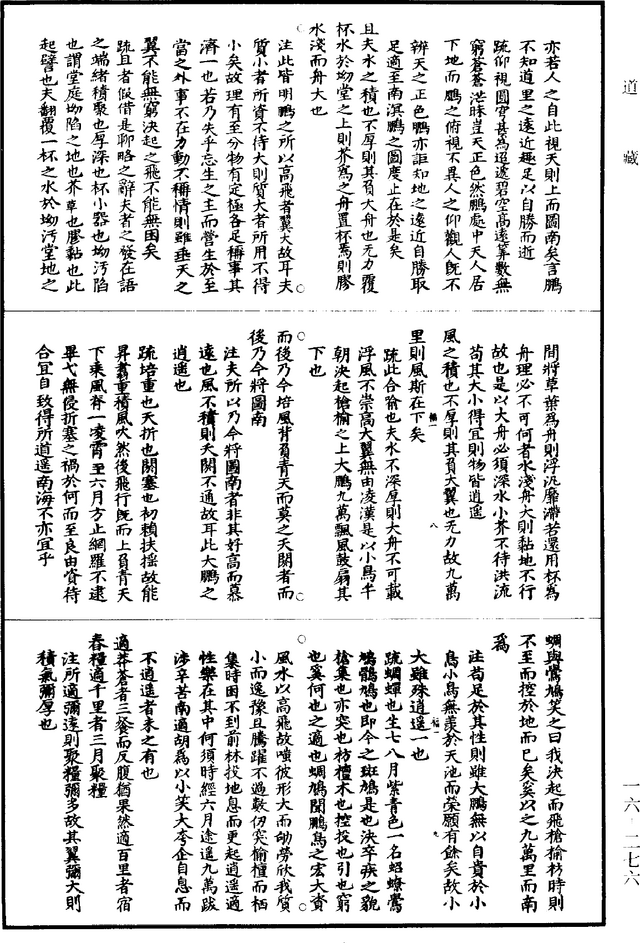 道藏
亦若人之自此視天則上而圖南矣言鵬
不知道里之遠近趣足以自勝而逝
疏仰視圓穹甚為迢遞碧空高遠筭數無
窮蒼蒼茫昧豈天正色然鵬處中天人居
下地而鵬之俯視不異人之仰觀人既不
辨天之正色鵬亦詎知地之遠近自勝取
足適至南溟鵬之圖度止在於是矣
且夫水之積也不厚則其負大舟也无力覆
杯水於坳堂之上則芥為之舟置杯焉則膠
水淺而舟大也
注此皆明鵬之所以高飛者翼大故耳夫
質小者所資不待大則質大者所用不得
小矣故理有至分物有定極各足稱事其
濟一也若乃失乎忘生之主而營生於至
當之外事不在力動不稱情則雖垂天之
翼不能無窮決起之飛不能無困矣
疏且者假借是聊略之辭夫者之發在語
之端緒積聚也厚深也杯小器也坳污陷
也謂堂庭坳陷之地也芥草也膠黏也此
起譬也夫翻覆一杯之水於坳污堂地之
間將草葉為舟則浮汎靡滯若還用杯為
舟理必不可何者水淺舟大則黏地不行
故也是以大舟必須深水小芥不待洪流
苟其大小得宜則物皆逍遥
風之積也不厚則其負大翼也无力故九萬
里則風斯在下矣
疏此合喻也夫水不深厚則大舟不可載
浮風不崇高大翼無由凌漢是以小鳥半
朝決起槍榆之上大鵬九萬飄風鼓扇其
下也
而後乃今培風背負青天而莫之夭閼者而
後乃今將圖南
注夫所以乃今將圖南者非其好高而慕
遠也風不積則夭閼不通故耳此大鵬之
逍遥也
疏培重也夭折也閼塞也初賴扶摇故能
昇翥重積風吹然後飛行既而上負青天
下乘風脊一凌霄至六月方止網羅不逮
畢弋無侵折塞之禍於何而至良由資待
合宜自致得所逍遥南海不亦宜乎
蜩與鷽鳩笑之曰我決起而飛槍榆枋時則
不至而控於地而已矣奚以之九萬里而南
為
注苟足於其性則雖大鵬無以自貴於小
鳥小鳥無羨於天池而榮願有餘矣故小
大雖殊逍遥一也
疏蜩蟬也生七八月紫青色一名蛁蟟鷽
鳩鶻鳩也即今之斑鳩是也決卒疾之貌
槍集也亦突也枋檀木也控投也引也窮
也奚何也之適也蜩鳩聞鵬鳥之宏大資
風水以高飛故嗤彼形大而劬勞欣我質
小而逸豫且騰躍不過數仞突榆檀而栖
集時困不到前林投地息而更起逍遥適
性樂在其中何須時經六月途遥九萬跋
涉辛苦南適胡為以小笑大夸企自息而
不逍遥者未之有也
適莽蒼者三飡而反腹猶果然適百里者宿
舂糧適千里者三月聚糧
注所適彌遠則聚糧彌多故其翼彌大則
積氣彌厚也
一六·二七六